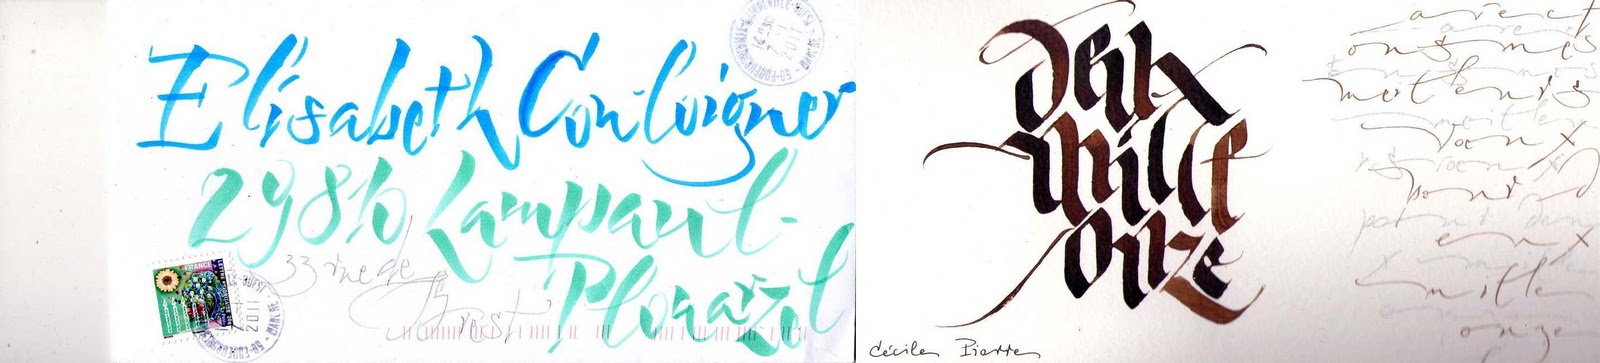 Elisabeth Couloigner
29810 Lampaul-
Plouarzel
33 rue de
Brest
FRANCE
2011
2011
deux
mille
onze
Cécile Pierre
avec t
ous mes
meilleurs
voeux
pour d
eux
mille
onze